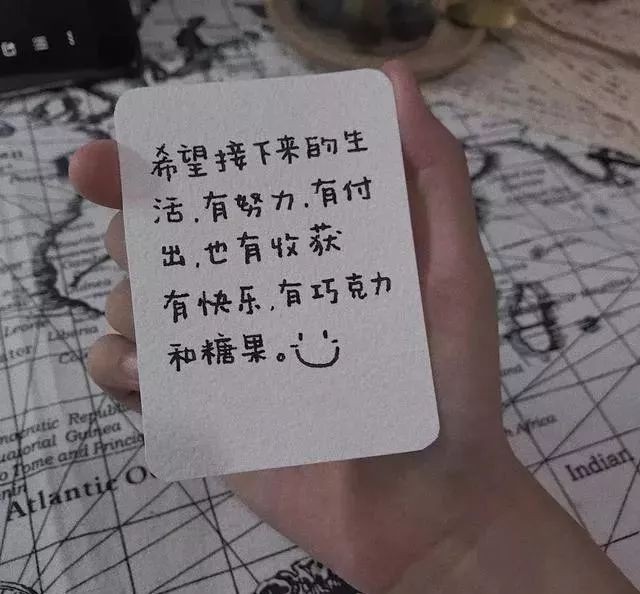 希望接下来的生
活,有努力,有付
出,也有收获
有快乐,有巧克力
和糖果。
Liberia
Democratic Republic
Equatorial Guinea
Sao Tome and Principe
Atlantic
Africa
Indian